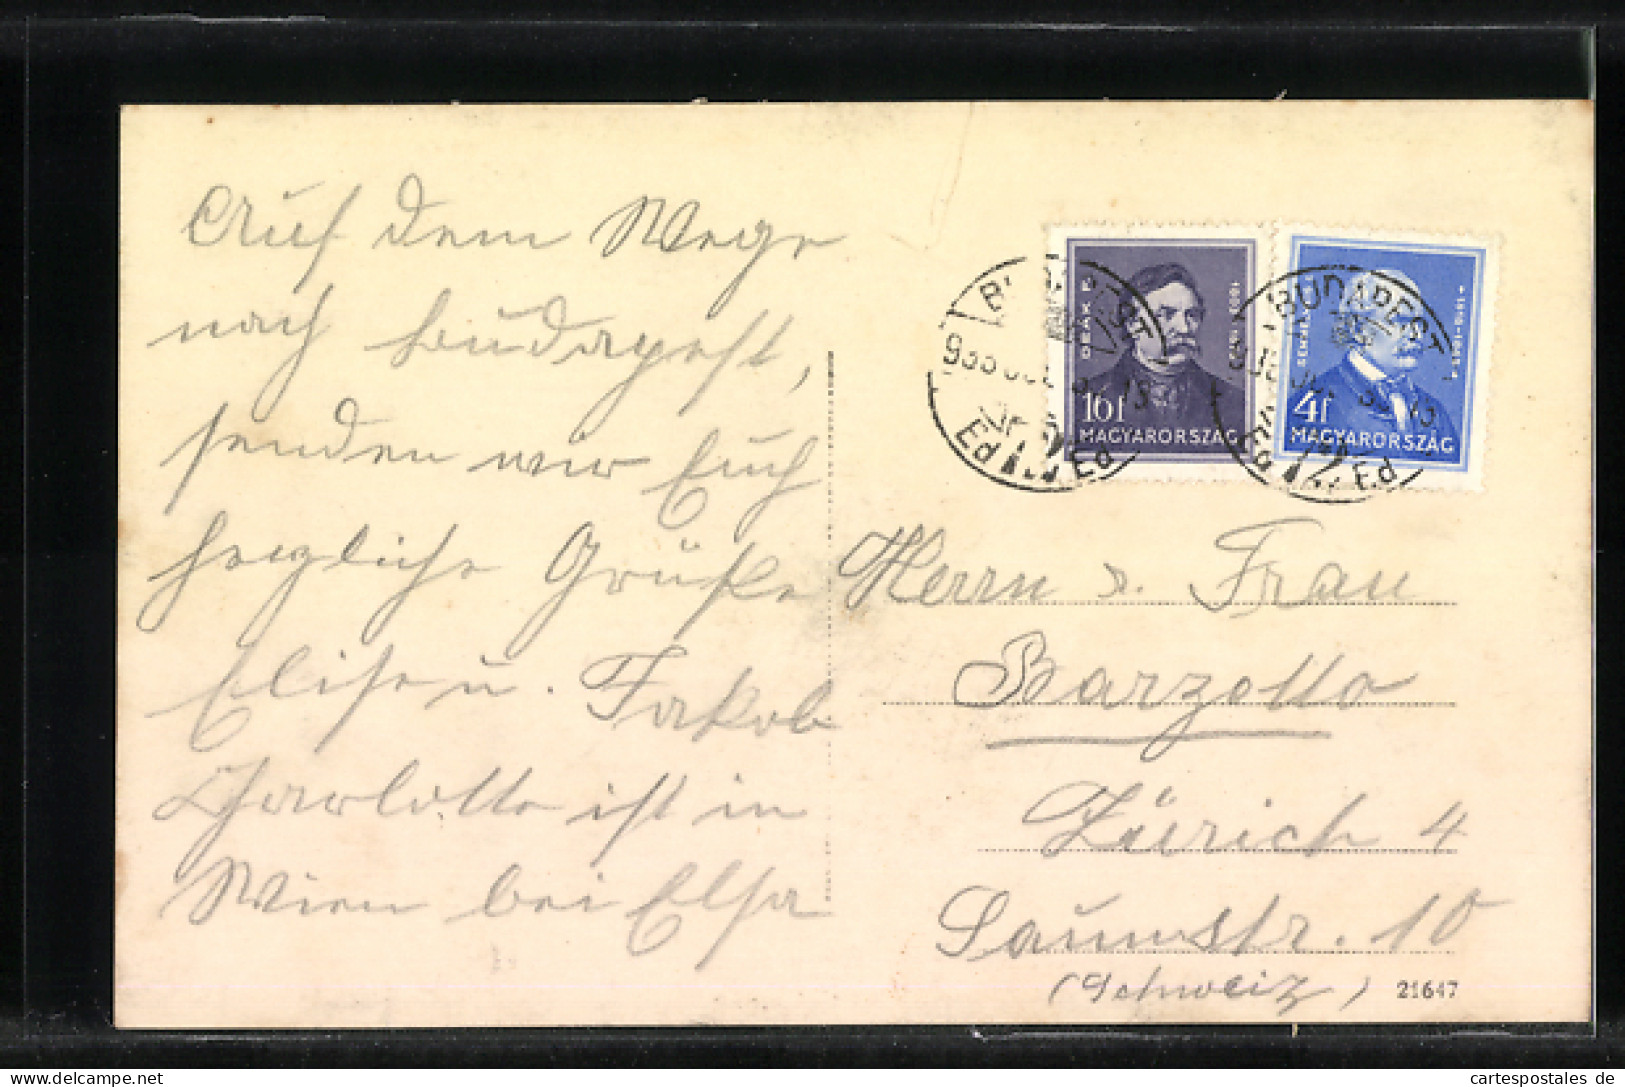 Auf dem Wege
nach Budapest,
senden wir Euch
herzliche Grüße
Elise u. Jakob
Charlotte ist in
Wien bei Elsa
DEÁK F.
16f
MAGYARORSZÁG
4f
MAGYARORSZÁG
BUDAPEST
BUDAPEST
Herrn u. Frau
Barzotto
Zürich 4
Saumstr. 10
(Schweiz)
21647
Your Ad Partner delcampe.net
cartespostales de